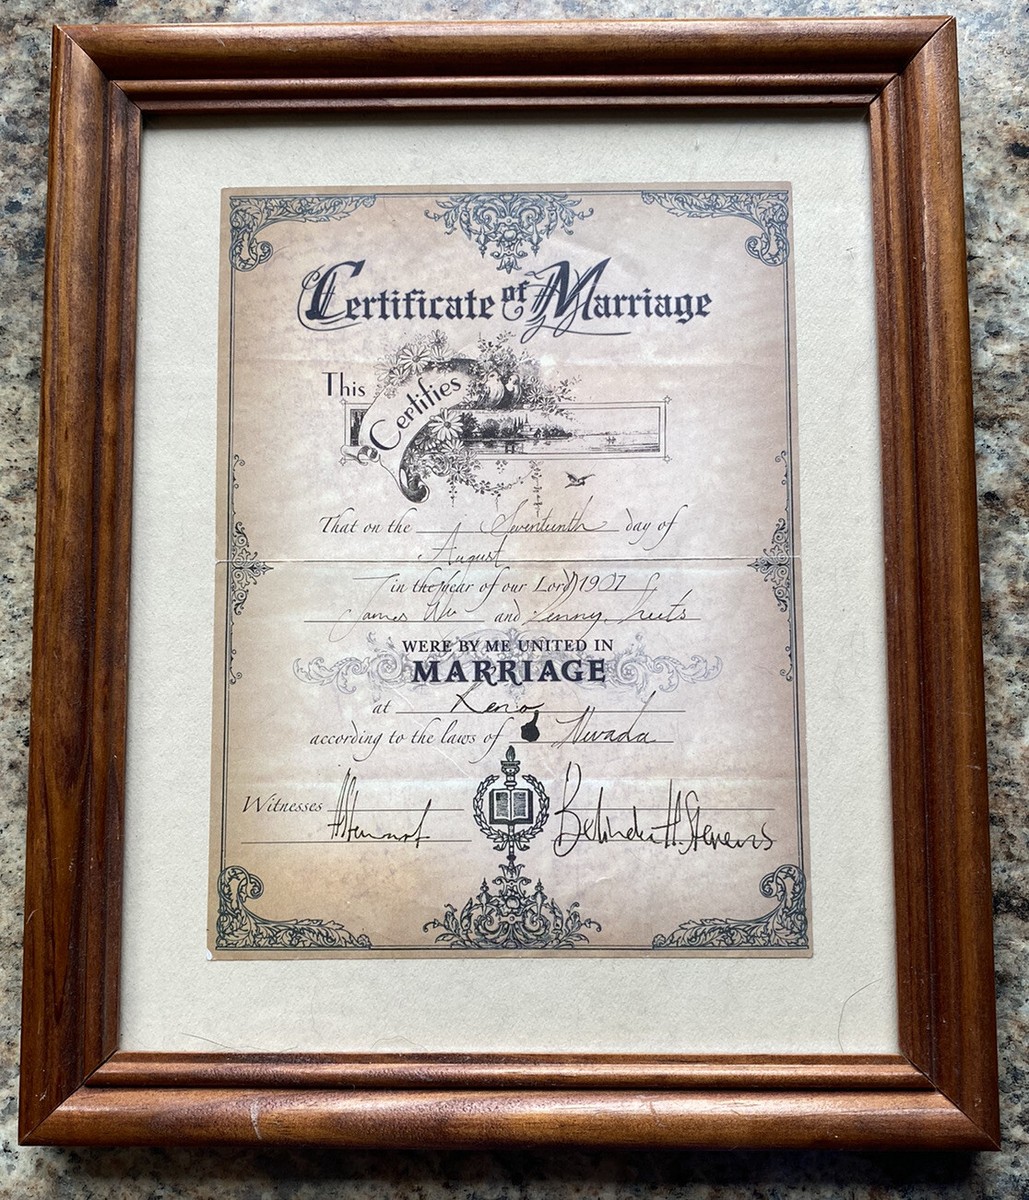 Certificate of Marriage
This Certifies
That on the Seventeenth day of
August
in the year of our Lord 1907
James and
WERE BY ME UNITED IN
MARRIAGE
at Reno
according to the laws of Nevada
Witnesses
Belinda H. Stevens